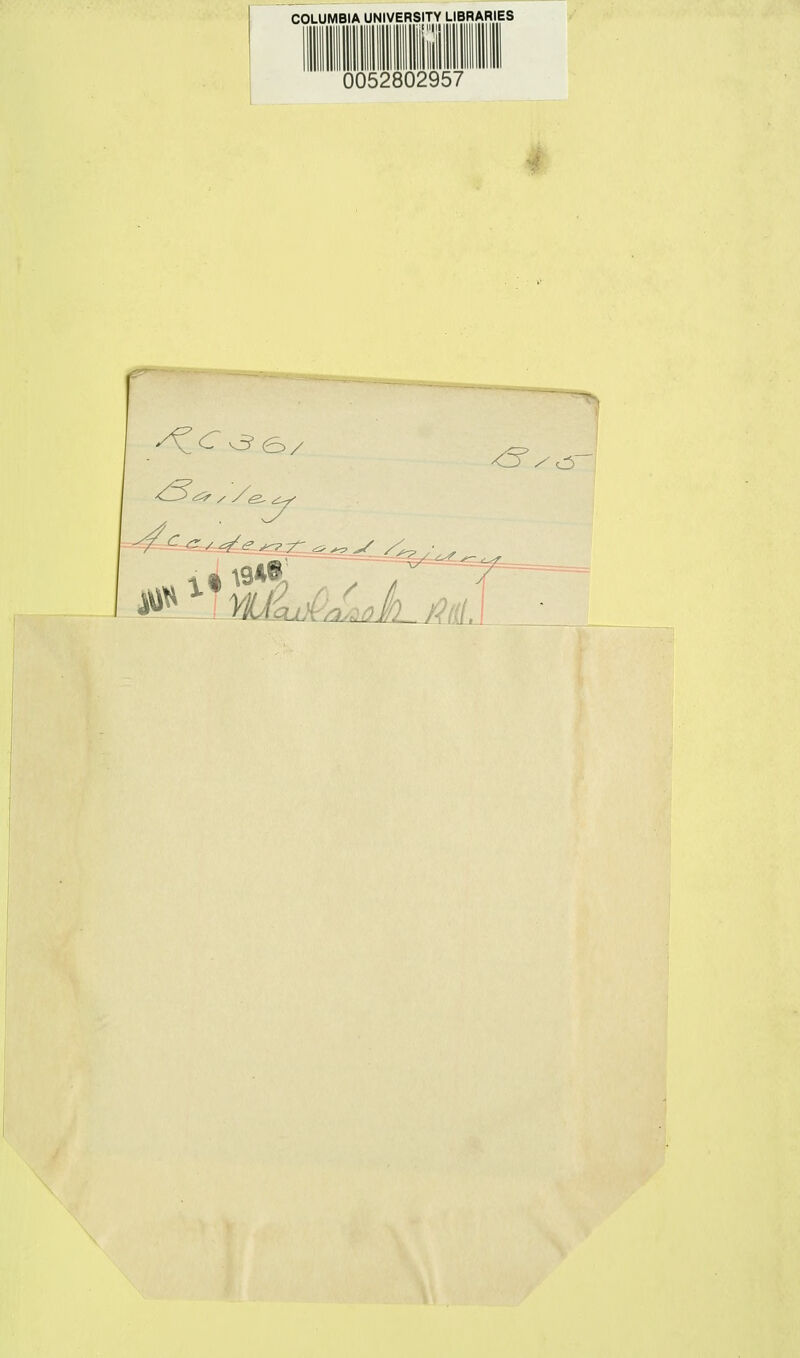 COLUMBIA UNIVERSITY LIBRARIES
0052802957
RC361 B15
Bailey
Accident and Injury
JUN 1 194